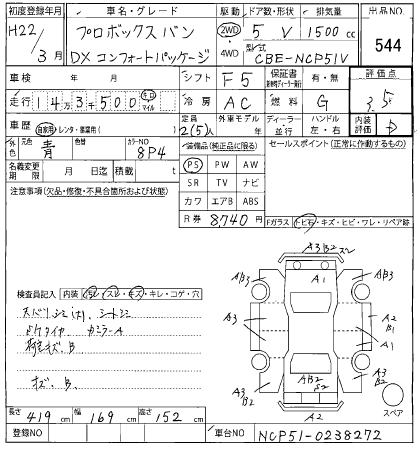 初度登録年月 車名・グレード ドア数・形状 排気量 出品NO.
H22/3月 プロボックスバン 2WD 5 V 1500 cc 544
DXコンフォートパッケージ 4WD 型式 CBE-NCP51V
車検 年 月 シフト F5 保証書 有・無 評価点
走行 14万3千500 キロ マイル 冷房 AC 燃料 G 3.5
車歴 自家用・レンタ・事業用( ) 定員 2(5)人 外車モデル 年 ディーラー・並行 ハンドル 左・右 内装評価 D
外色 元色 青 色替 カラーNO 8P4 装備品(純正品に限る) セールスポイント(正常に作動するもの)
名義変更期限 月 日迄 積載 t PS PW AW
注意事項(欠品・修復・不具合箇所および状態) SR TV ナビ
カワ エアB ABS
R券 8,740円 Fガラス トビ石・キズ・ヒビ・ワレ・リペア跡
A3B2
A1
AB3 AB3
検査員記入 内装 汚レ・スレ・キズ・キレ・コゲ・穴
A3 A2
B1
A3 A1
キズ、B
AB2
S2
A3
B2
A3
B2
A2
スペア
長さ 419 cm 幅 169 cm 高さ 152 cm
登録NO 車台NO NCP51-0238272